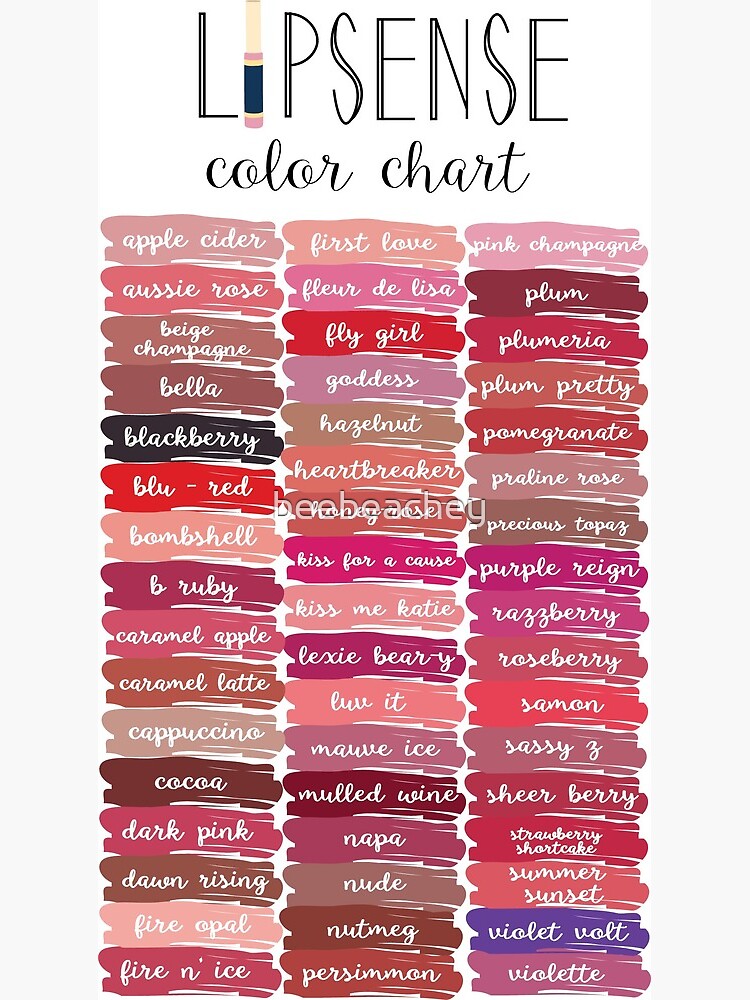 LIPSENSE
color chart
apple cider
aussie rose
beige
champagne
bella
blackberry
blu - red
bombshell
b ruby
caramel apple
caramel latte
cappuccino
cocoa
dark pink
dawn rising
fire opal
fire n' ice
first love
fleur de lisa
fly girl
goddess
hazelnut
heartbreaker
honey rose
beebeachey
kiss for a cause
kiss me katie
lexie bear-y
luv it
mauve ice
mulled wine
napa
nude
nutmeg
persimmon
pink champagne
plum
plumeria
plum pretty
pomegranate
praline rose
precious topaz
purple reign
razzberry
roseberry
samon
sassy z
sheer berry
strawberry
shortcake
summer
sunset
violet volt
violette